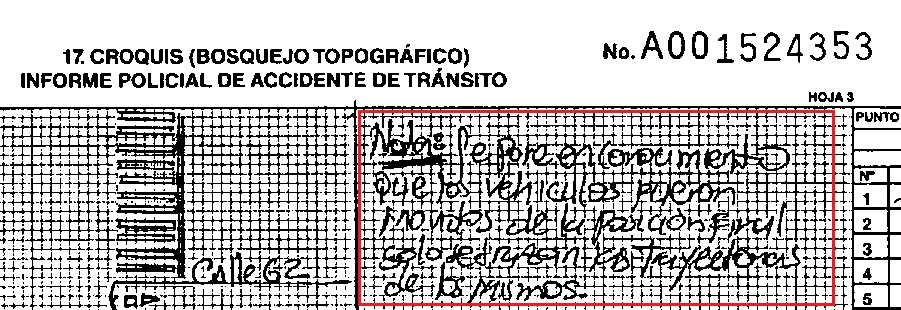 17. CROQUIS (BOSQUEJO TOPOGRÁFICO)
INFORME POLICIAL DE ACCIDENTE DE TRÁNSITO
No. A001524353
HOJA 3
PUNTO
Nº
1
2
3
4
5
Nota: Se pone en conocimiento
que los vehiculos fueron
movidos de la posicion final
solo se dibujan las trayectorias
de los mismos.
Calle 62